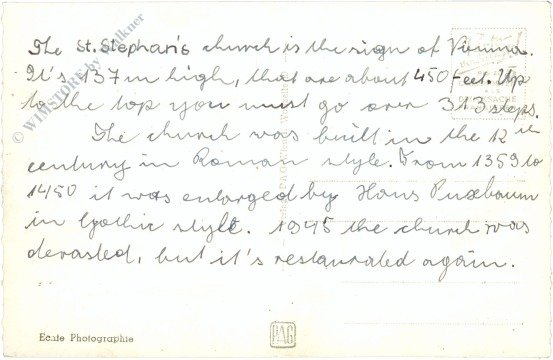 The St. Stephan's church is the sign of Vienna.
It's 137 m high, that are about 450 feet. Up
to the top you must go over 313 steps.
The church was built in the 12th
century in Roman style. From 1359 to
1450 it was enlarged by Hans Puxbaum
in Gothic style. 1945 the church was
devasted, but it's restaurated again.
Echte Photographie
PAG
© WIMSTORE by Falkner